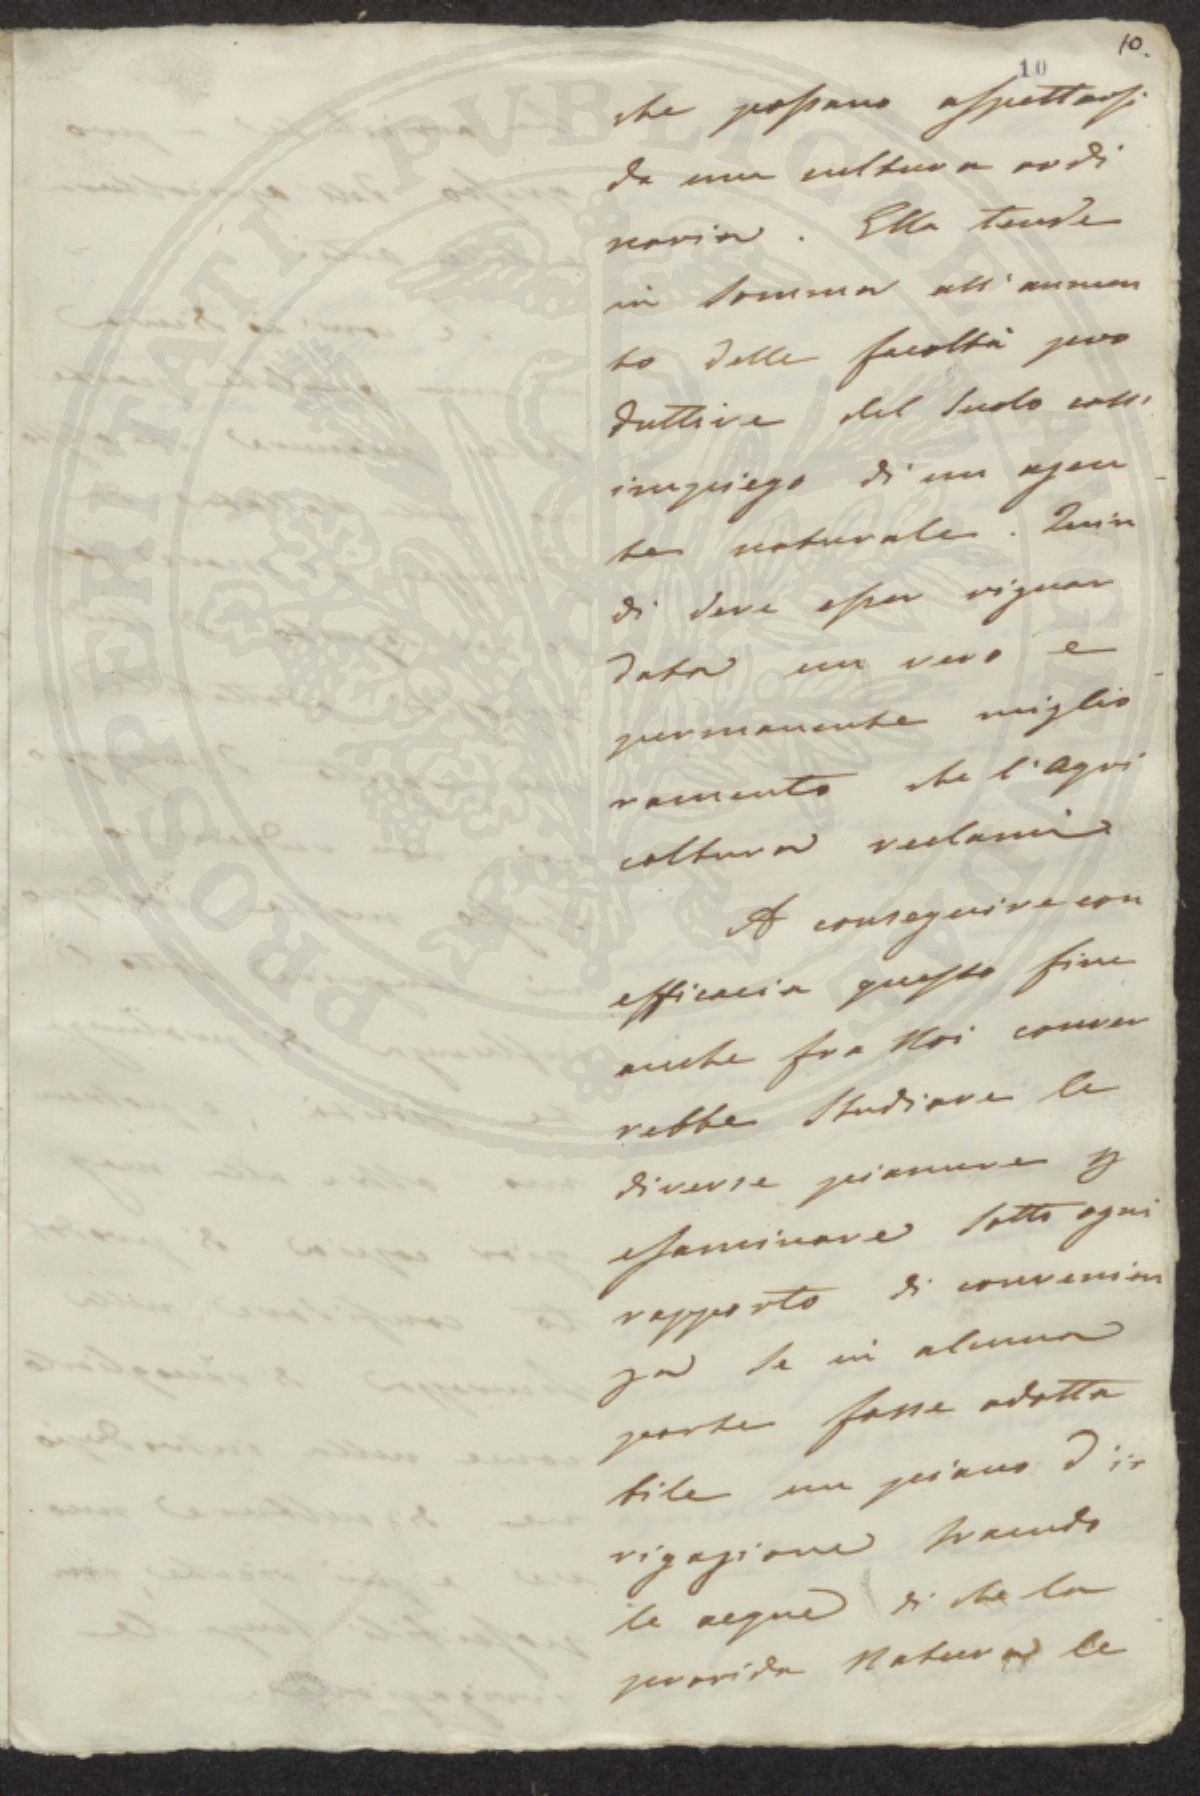 10.
10
che possano aspettarsi
da una cultura ordi
naria. Ella tende
in somma all'aumen
to delle facoltà pro
duttive del suolo coll'
impiego di un agen
te naturale. Quin
di deve esser riguar
data un vero e
permanente miglio
ramento che l'agri
coltura reclami
A conseguire con
efficacia questo fine
anche fra Noi conver
rebbe studiare le
diverse pianure ed
esaminare sotto ogni
rapporto di convenien
za se in alcuna
parte fosse adotta
bile un piano d'ir
rigazione traendo
le acque di che la
provida Natura le
PROSPERITATI PUBLICAE AUGENDAE